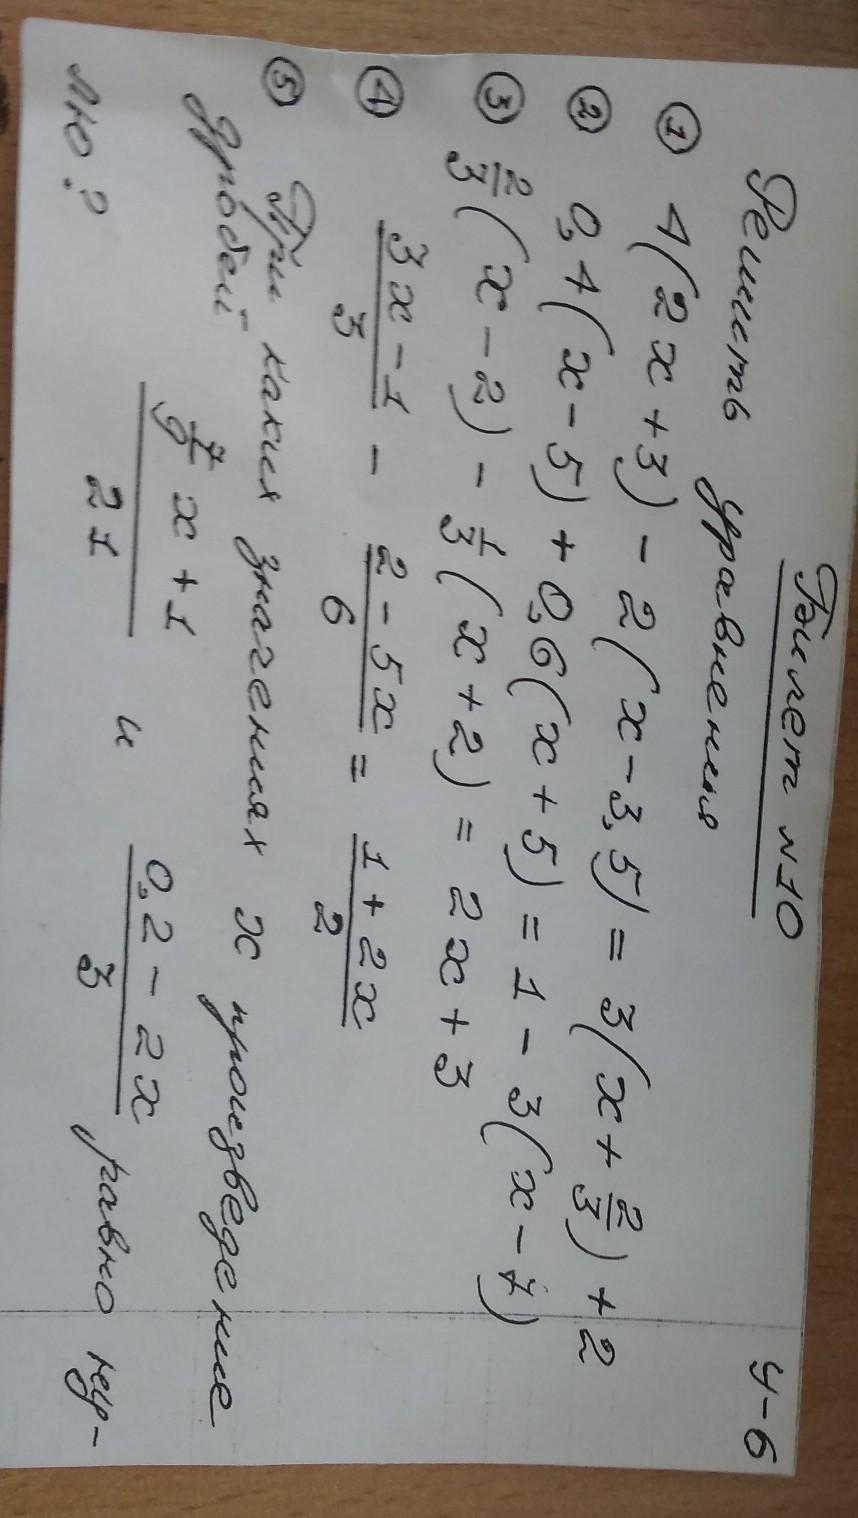 Билет №10
У-6
Решить уравнения
① 4(2x+3) - 2(x-3,5) = 3(x+2/3)+2
② 0,4(x-5)+0,6(x+5) = 1-3(x-7)
③ 2/3(x-2) - 1/3(x+2) = 2x+3
④ (3x-1)/3 - (2-5x)/6 = (1+2x)/2
⑤ При каких значениях x произведение
дробей (7/9 x+1)/21 и (0,2-2x)/3 равно ну-
лю?